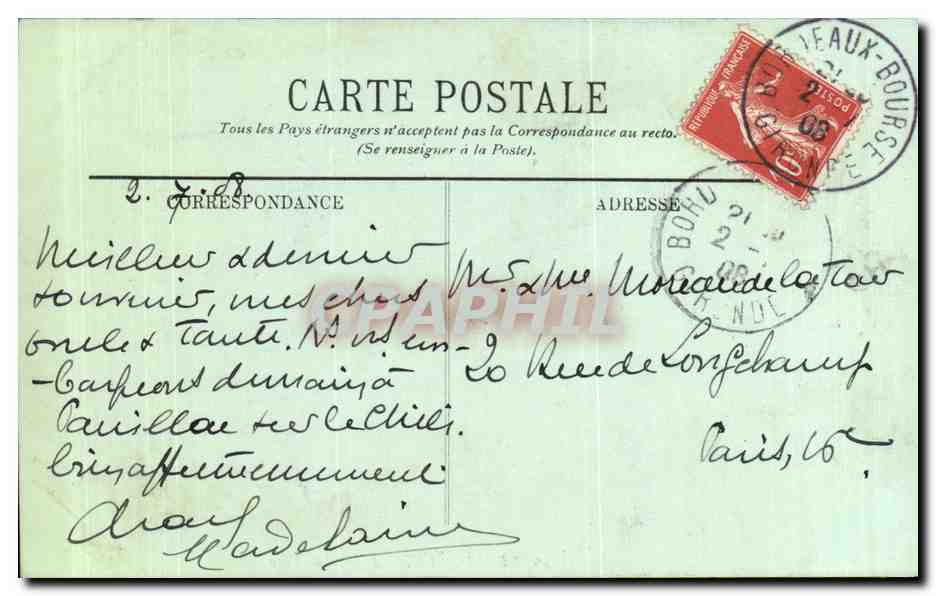 CARTE POSTALE
Tous les Pays étrangers n'acceptent pas la Correspondance au recto.
(Se renseigner à la Poste).
RÉPUBLIQUE FRANÇAISE
POSTES
10
BORDEAUX-BOURSE
GIRONDE
2
08
BORD
21
2
08
GIRONDE
2.7.08
CORRESPONDANCE
Meilleur & dernier
souvenir, mes chers
oncle & Tante. Ns ns em-
-barquons demain à
Pauillac sur le Chili.
bien affectueusement
Madelaine
ADRESSE
Mr & Mme. Moreau de la Tour
20 Rue de Longchamp
Paris, 16e
CPAPHIL